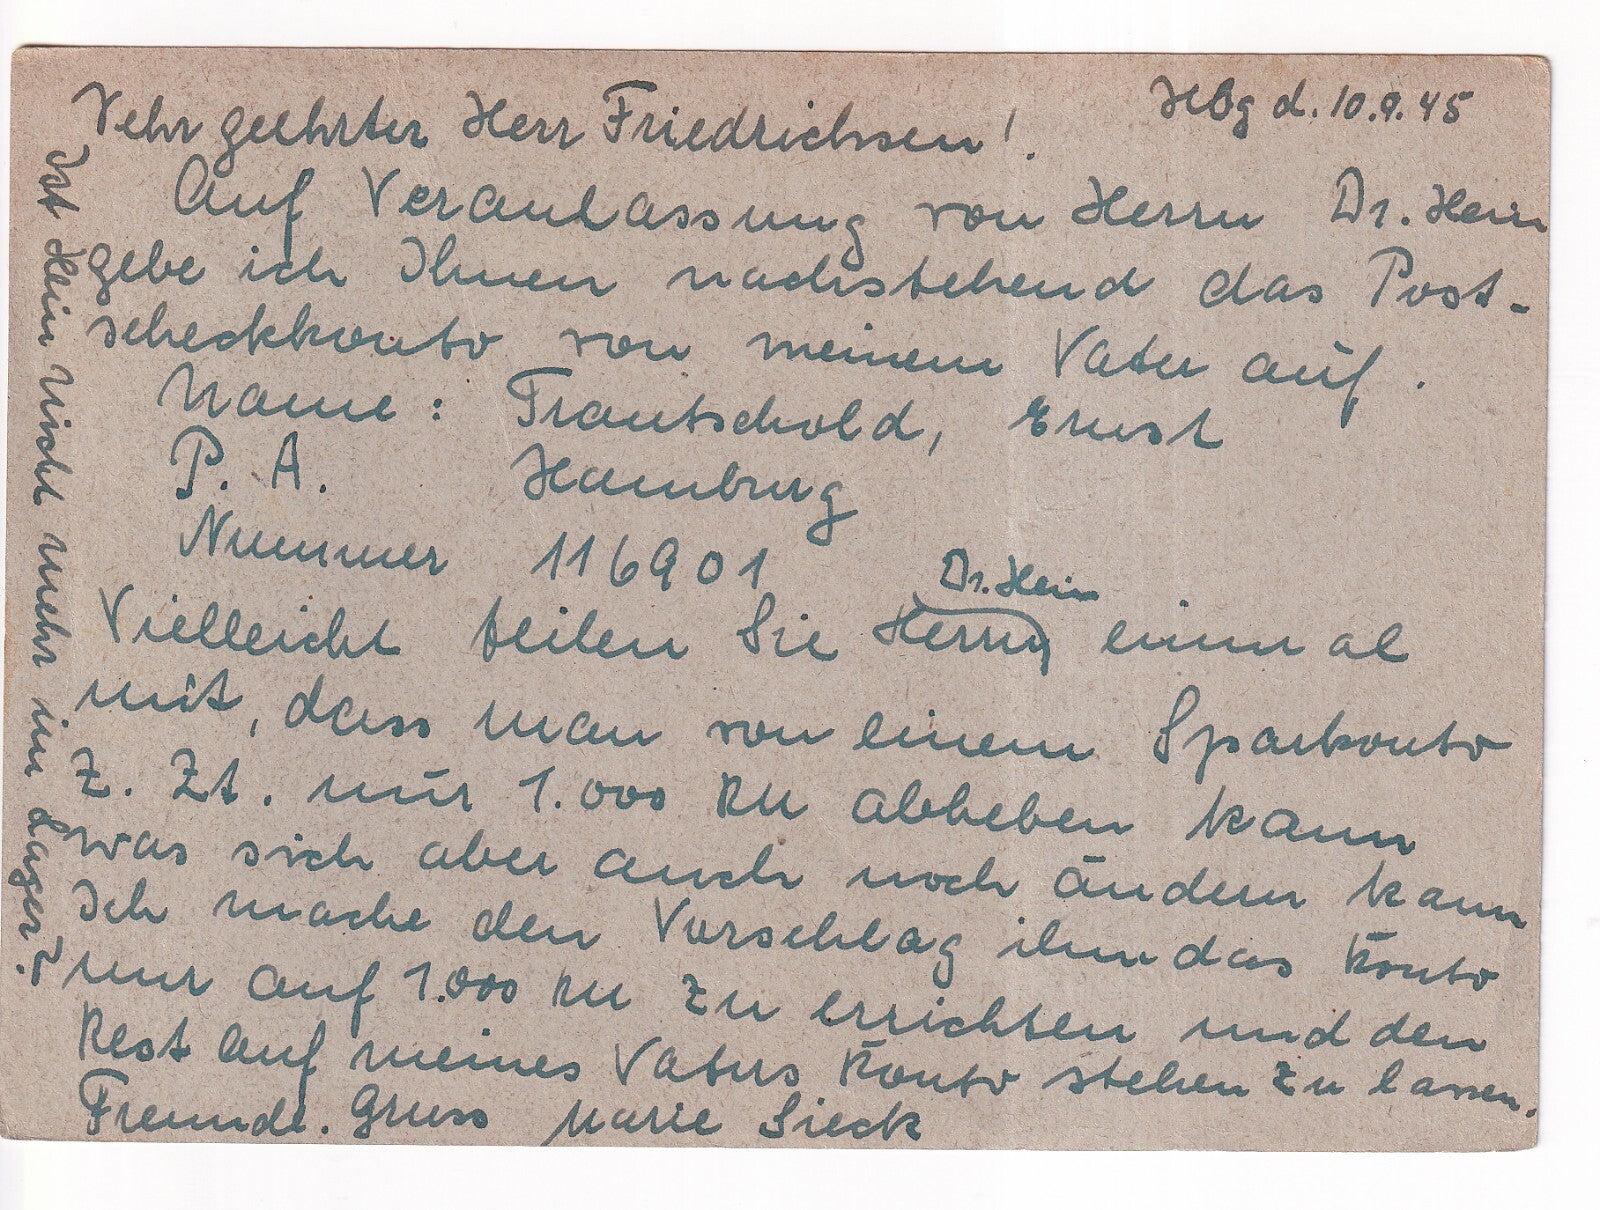 Hbg d. 10.9.45
Sehr geehrter Herr Friedrichsen!
Auf Veranlassung von Herrn Dr. Hein
gebe ich Ihnen nachstehend das Post-
scheckkonto von meinem Vater auf.
Name: Trautschold, Ernst
P. A. Hamburg
Nummer 116901
Dr. Hein
Vielleicht teilen Sie Herrn einmal
mit, dass man von einem Sparkonto
z. Zt. nur 1.000 RM abheben kann
was sich aber auch noch ändern kann
Ich mache den Vorschlag ihm das Konto
nur auf 1.000 RM zu errichten und den
Rest auf meines Vaters Konto stehen zu lassen.
Freundl. Gruss Marie Sieck
Ist Hein nicht mehr im Lager?